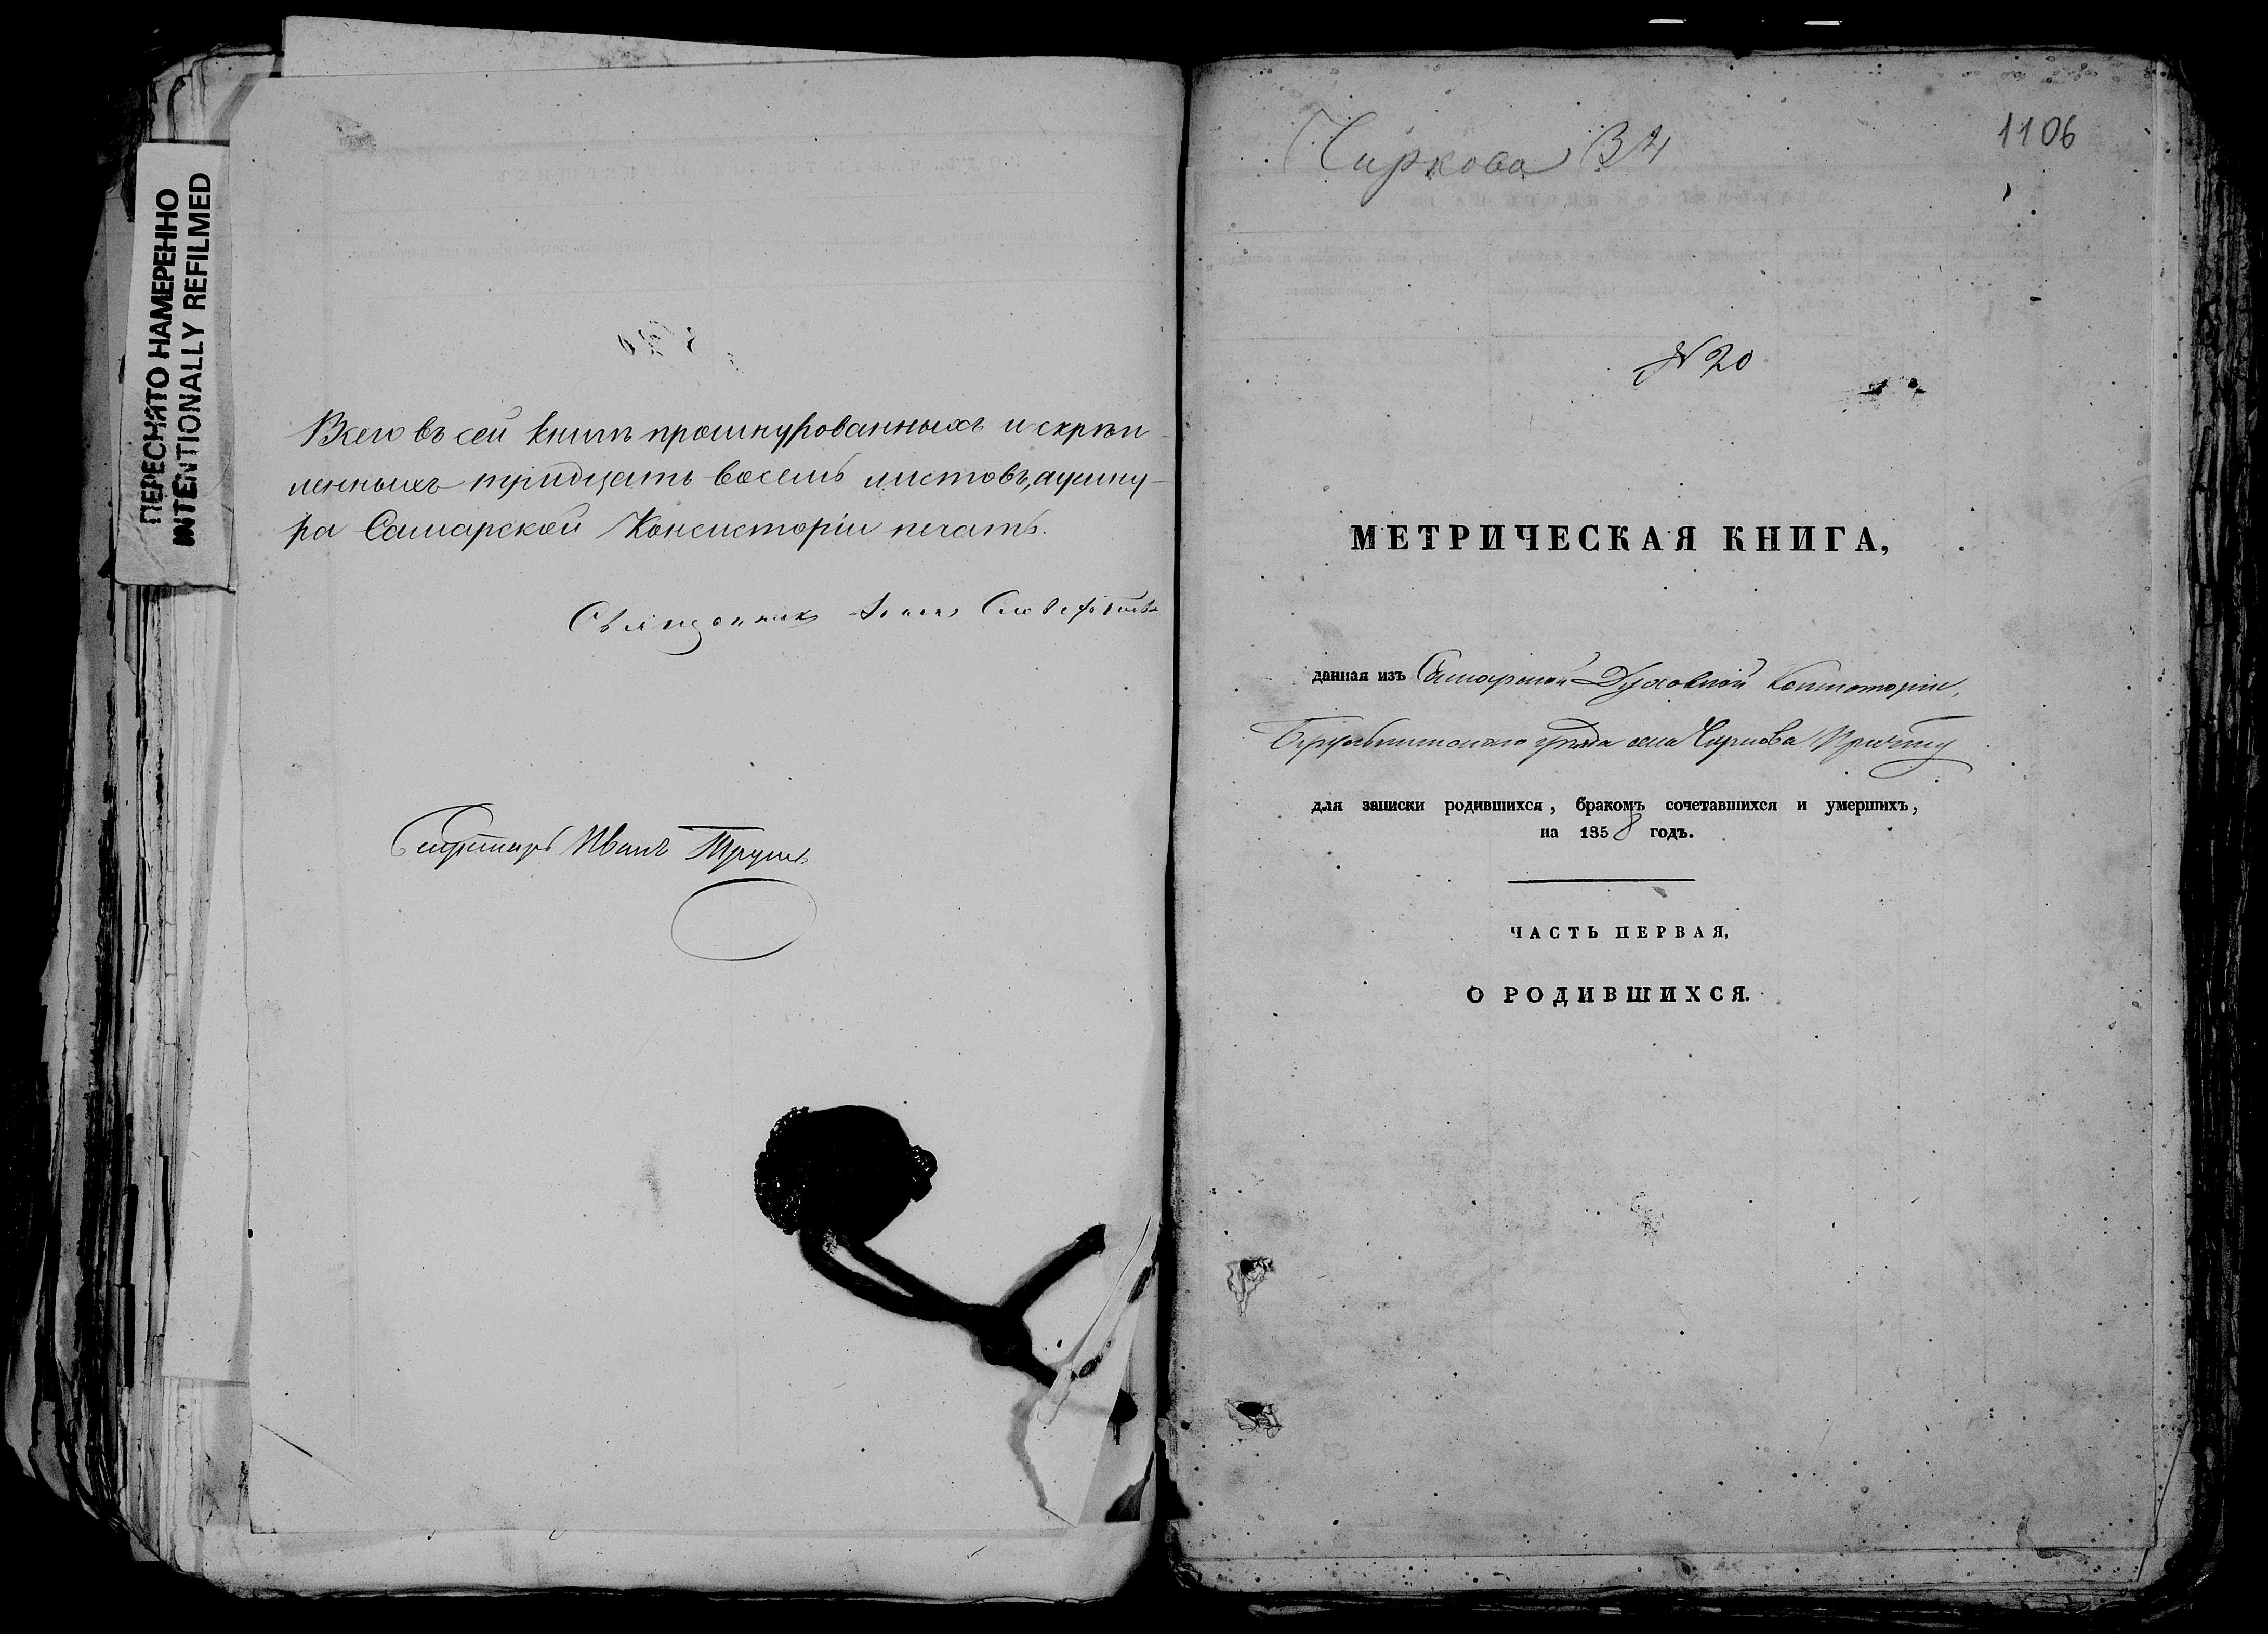 ПЕРЕСНЯТО НАМЕРЕННО
INTENTIONALLY REFILMED
Всего въ сей книгѣ прошнурованныхъ и скрѣп-
ленныхъ тридцать восемь листовъ, а у шну-
ра Самарской Консисторіи печать.
Священникъ
Секретарь Иванъ
Чиркова 34
1106
№ 20
МЕТРИЧЕСКАЯ КНИГА,
данная изъ Самарской Духовной Консисторіи,
Бугульминскаго уѣзда села Чиркова Причту
для записки родившихся, бракомъ сочетавшихся и умершихъ,
на 1858 годъ.
ЧАСТЬ ПЕРВАЯ,
О РОДИВШИХСЯ.